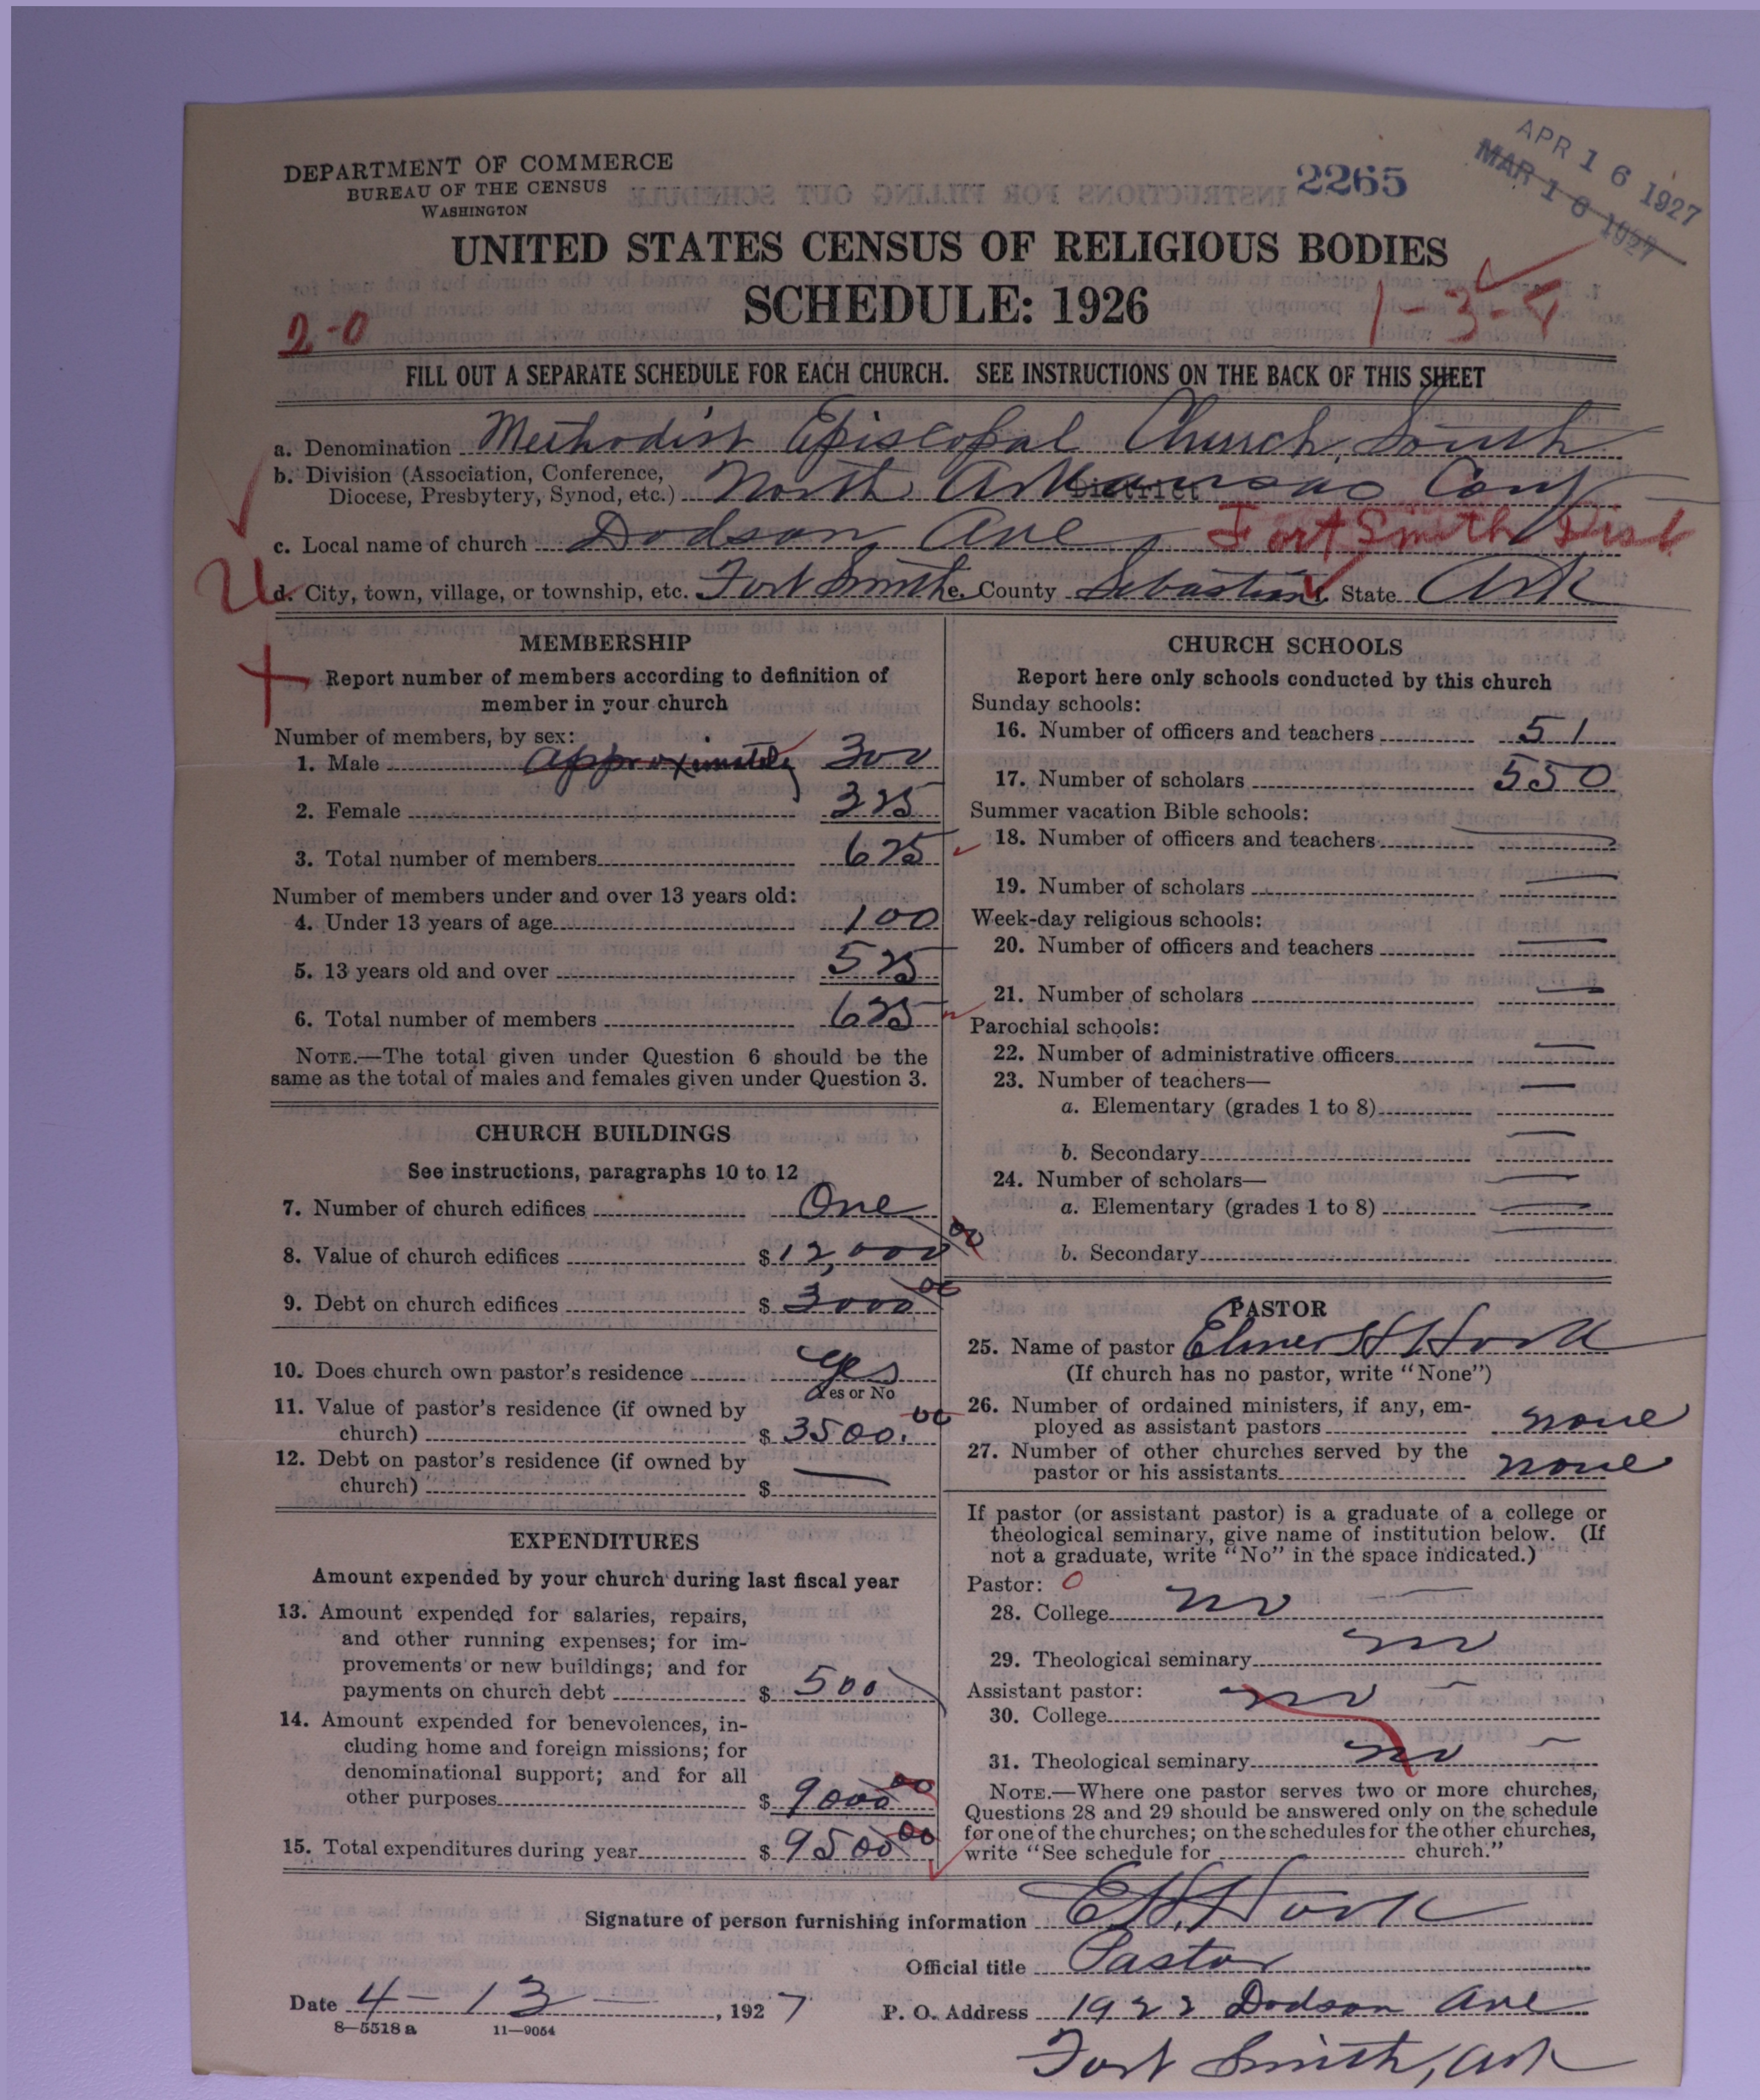 DEPARTMENT OF COMMERCE
BUREAU OF THE CENSUS
WASHINGTON
2265
APR 16 1927
MAR 16 1927
UNITED STATES CENSUS OF RELIGIOUS BODIES
SCHEDULE: 1926
2-0
1-3-
FILL OUT A SEPARATE SCHEDULE FOR EACH CHURCH. SEE INSTRUCTIONS ON THE BACK OF THIS SHEET
a. Denomination Methodist Episcopal Church, South
b. Division (Association, Conference,
Diocese, Presbytery, Synod, etc.) North Arkansas Conf
District
c. Local name of church Dodson Ave Fort Smith Dist
U
d. City, town, village, or township, etc. Fort Smith County Sebastian State Ark
MEMBERSHIP
Report number of members according to definition of
member in your church
Number of members, by sex:
1. Male approximately 300
2. Female 325
3. Total number of members 625
Number of members under and over 13 years old:
4. Under 13 years of age 100
5. 13 years old and over 525
6. Total number of members 625
NOTE.—The total given under Question 6 should be the
same as the total of males and females given under Question 3.
CHURCH BUILDINGS
See instructions, paragraphs 10 to 12
7. Number of church edifices One
8. Value of church edifices $12,000 00
9. Debt on church edifices $ 3000 00
10. Does church own pastor's residence yes
Yes or No
11. Value of pastor's residence (if owned by
church) $ 3500. 00
12. Debt on pastor's residence (if owned by
church) $ —
EXPENDITURES
Amount expended by your church during last fiscal year
13. Amount expended for salaries, repairs,
and other running expenses; for im-
provements or new buildings; and for
payments on church debt $ 500
14. Amount expended for benevolences, in-
cluding home and foreign missions; for
denominational support; and for all
other purposes $ 9000 00
15. Total expenditures during year $ 9500 00
CHURCH SCHOOLS
Report here only schools conducted by this church
Sunday schools:
16. Number of officers and teachers 51
17. Number of scholars 550
Summer vacation Bible schools:
18. Number of officers and teachers —
19. Number of scholars —
Week-day religious schools:
20. Number of officers and teachers —
21. Number of scholars —
Parochial schools:
22. Number of administrative officers —
23. Number of teachers— —
a. Elementary (grades 1 to 8)
b. Secondary —
24. Number of scholars— —
a. Elementary (grades 1 to 8) —
b. Secondary —
PASTOR
25. Name of pastor Elmer H Hook
(If church has no pastor, write "None")
26. Number of ordained ministers, if any, em-
ployed as assistant pastors none
27. Number of other churches served by the
pastor or his assistants none
If pastor (or assistant pastor) is a graduate of a college or
theological seminary, give name of institution below. (If
not a graduate, write "No" in the space indicated.)
Pastor: 0
28. College no —
29. Theological seminary no
Assistant pastor:
30. College no —
31. Theological seminary no —
NOTE.—Where one pastor serves two or more churches,
Questions 28 and 29 should be answered only on the schedule
for one of the churches; on the schedules for the other churches,
write "See schedule for church."
Signature of person furnishing information E H Hook
Official title Pastor
Date 4-13-, 1927
P. O. Address 1922 Dodson Ave
8—5518 a 11—9054
Fort Smith, Ark